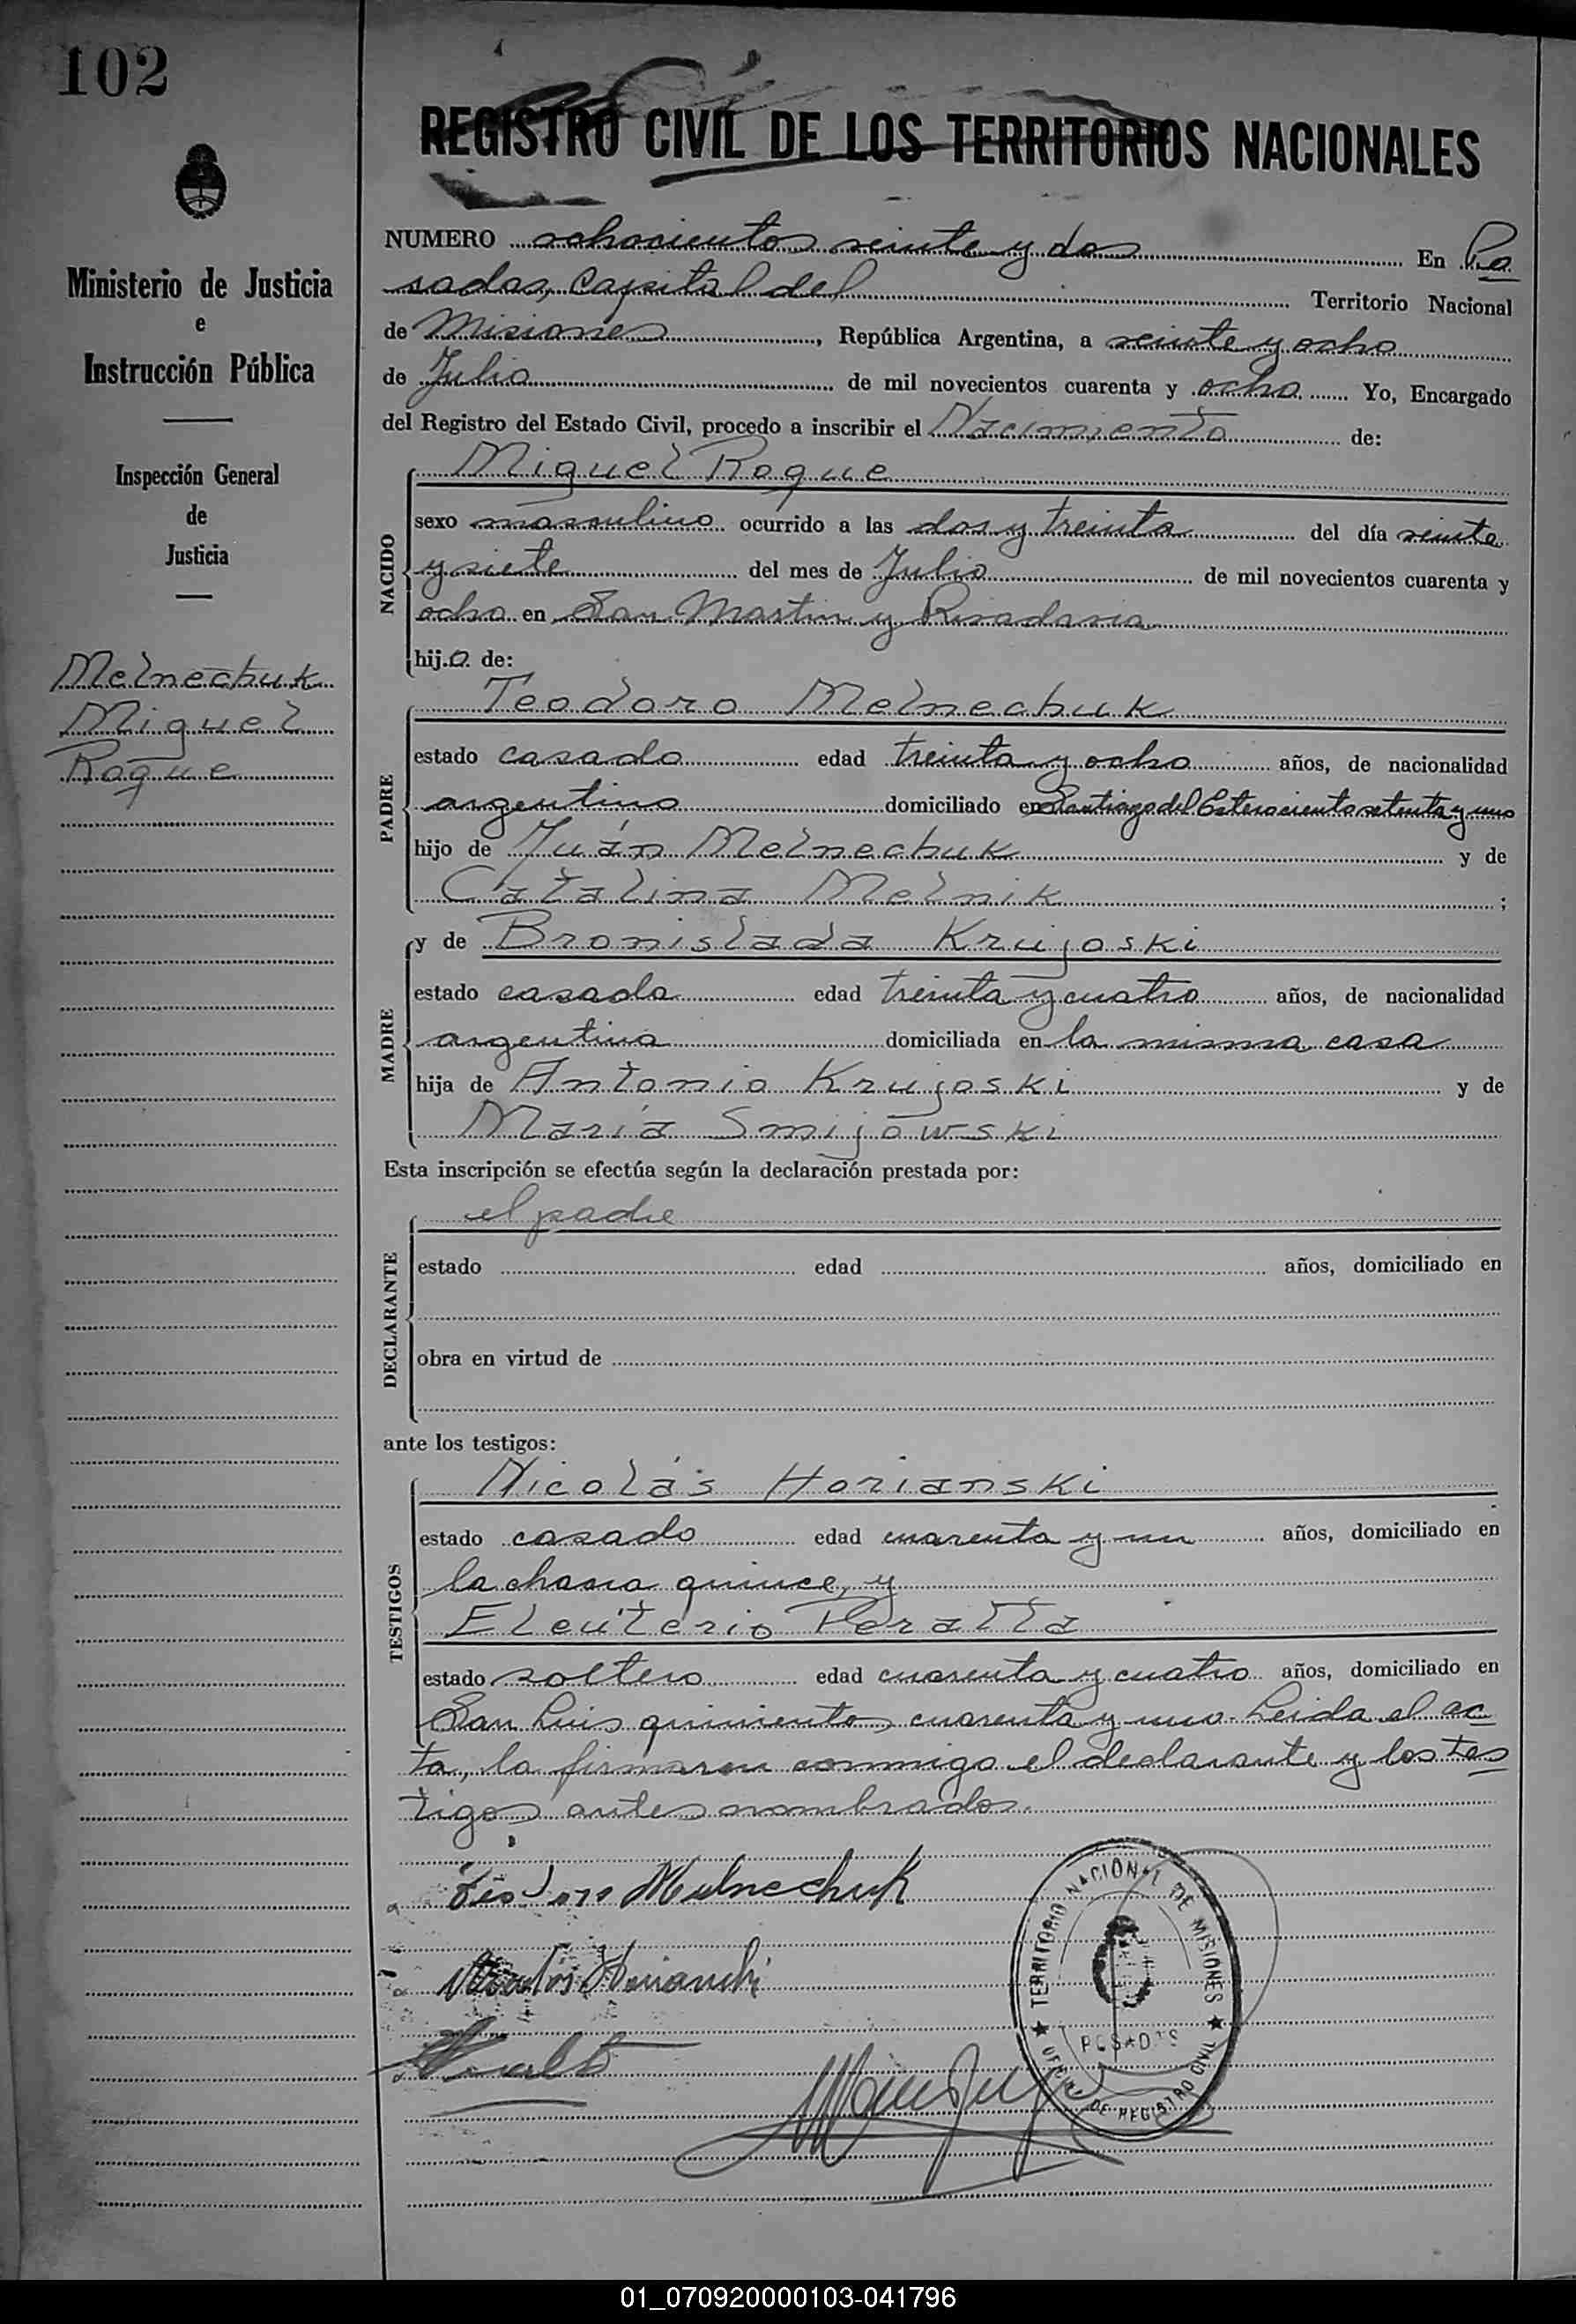 102
Ministerio de Justicia
e
Instrucción Pública
Inspección General
de
Justicia
Melnechuk
Miguel
Roque
REGISTRO CIVIL DE LOS TERRITORIOS NACIONALES
NUMERO ochocientos veinte y dos En Po
sadas, Capital del Territorio Nacional
de Misiones, República Argentina, a veinte y ocho
de Julio de mil novecientos cuarenta y ocho Yo, Encargado
del Registro del Estado Civil, procedo a inscribir el Nacimiento de:
NACIDO
Miguel Roque
sexo masculino ocurrido a las dos y treinta del día veinte
y siete del mes de Julio de mil novecientos cuarenta y
ocho en San Martin y Rivadavia
hijo de:
PADRE
Teodoro Melnechuk
estado casado edad treinta y ocho años, de nacionalidad
argentino domiciliado en Santiago del Estero ciento setenta y uno
hijo de Juán Melnechuk y de
Catalina Melnik ;
MADRE
y de Bronislada Krujoski
estado casada edad treinta y cuatro años, de nacionalidad
argentina domiciliada en la misma casa
hija de Antonio Krujoski y de
María Smijowski
Esta inscripción se efectúa según la declaración prestada por:
DECLARANTE
el padre
estado edad años, domiciliado en
obra en virtud de
ante los testigos:
TESTIGOS
Nicolás Horianski
estado casado edad cuarenta y un años, domiciliado en
la chacra quince, y
Eleuterio Peralta
estado soltero edad cuarenta y cuatro años, domiciliado en
San Luis quinientos cuarenta y uno. Leida el ac
ta, la firmaron conmigo el declarante y los tes
tigos antes nombrados.
Teodoro Melnechuk
Nicolás Horianski
TERRITORIO NACIONAL DE MISIONES
POSADAS
OFICINA DE REGISTRO CIVIL
01_070920000103-041796